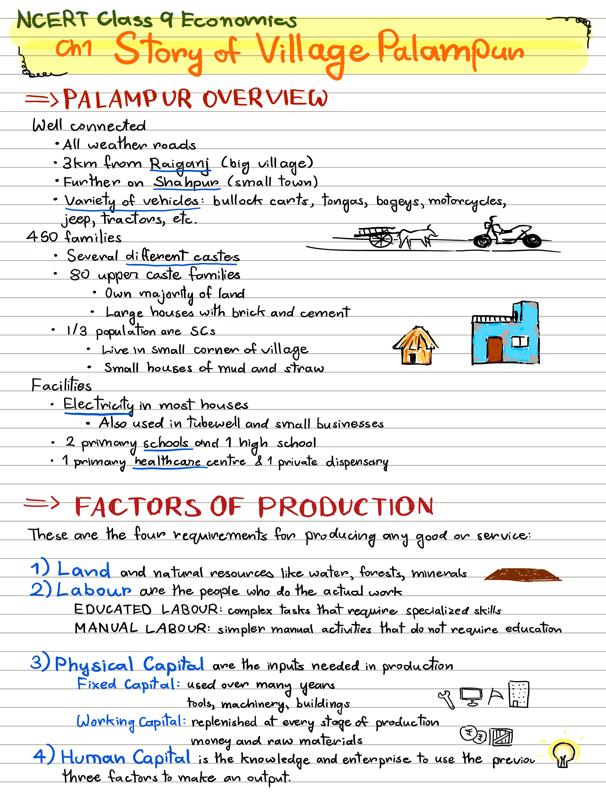 NCERT Class 9 Economics
Ch1 Story of Village Palampur
⇒ PALAMPUR OVERVIEW
Well connected
• All weather roads
• 3km from Raiganj (big village)
• Further on Shahpur (small town)
• Variety of vehicles: bullock carts, tongas, bogeys, motorcycles,
jeep, tractors, etc.
450 families
• Several different castes
• 80 upper caste families
• Own majority of land
• Large houses with brick and cement
• 1/3 population are SCs
• Live in small corner of village
• Small houses of mud and straw
Facilities
• Electricity in most houses
• Also used in tubewell and small businesses
• 2 primary schools and 1 high school
• 1 primary healthcare centre & 1 private dispensary
⇒ FACTORS OF PRODUCTION
These are the four requirements for producing any good or service:
1) Land and natural resources like water, forests, minerals
2) Labour are the people who do the actual work
EDUCATED LABOUR: complex tasks that require specialized skills
MANUAL LABOUR: simpler manual activities that do not require education
3) Physical Capital are the inputs needed in production
Fixed Capital: used over many years
tools, machinery, buildings
Working Capital: replenished at every stage of production
₹ ₹
money and raw materials
4) Human Capital is the knowledge and enterprise to use the previou
three factors to make an output.